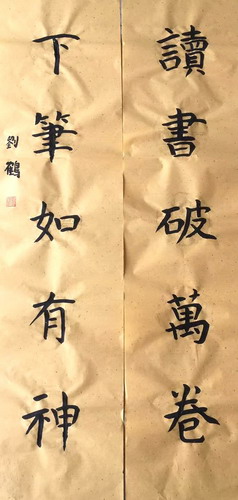 讀書破萬卷
下筆如有神
劉鶴